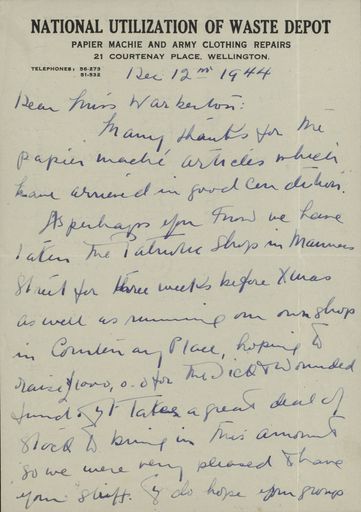 NATIONAL UTILIZATION OF WASTE DEPOT
PAPIER MACHIE AND ARMY CLOTHING REPAIRS
21 COURTENAY PLACE, WELLINGTON.
TELEPHONES: 56-273
51-932
Dec 12th 1944
Dear Miss Warberton:
Many thanks for the
papier maché articles which
have arrived in good condition.
As perhaps you know we have
taken the Patriotic Shop in Manners
Street for three weeks before Xmas
as well as running our own shop
in Courtenay Place, hoping to
raise £1000,0.0 for the Sick & Wounded
fund. It takes a great deal of
stock to bring in this amount
so we were very pleased to have
your stuff. I do hope your group